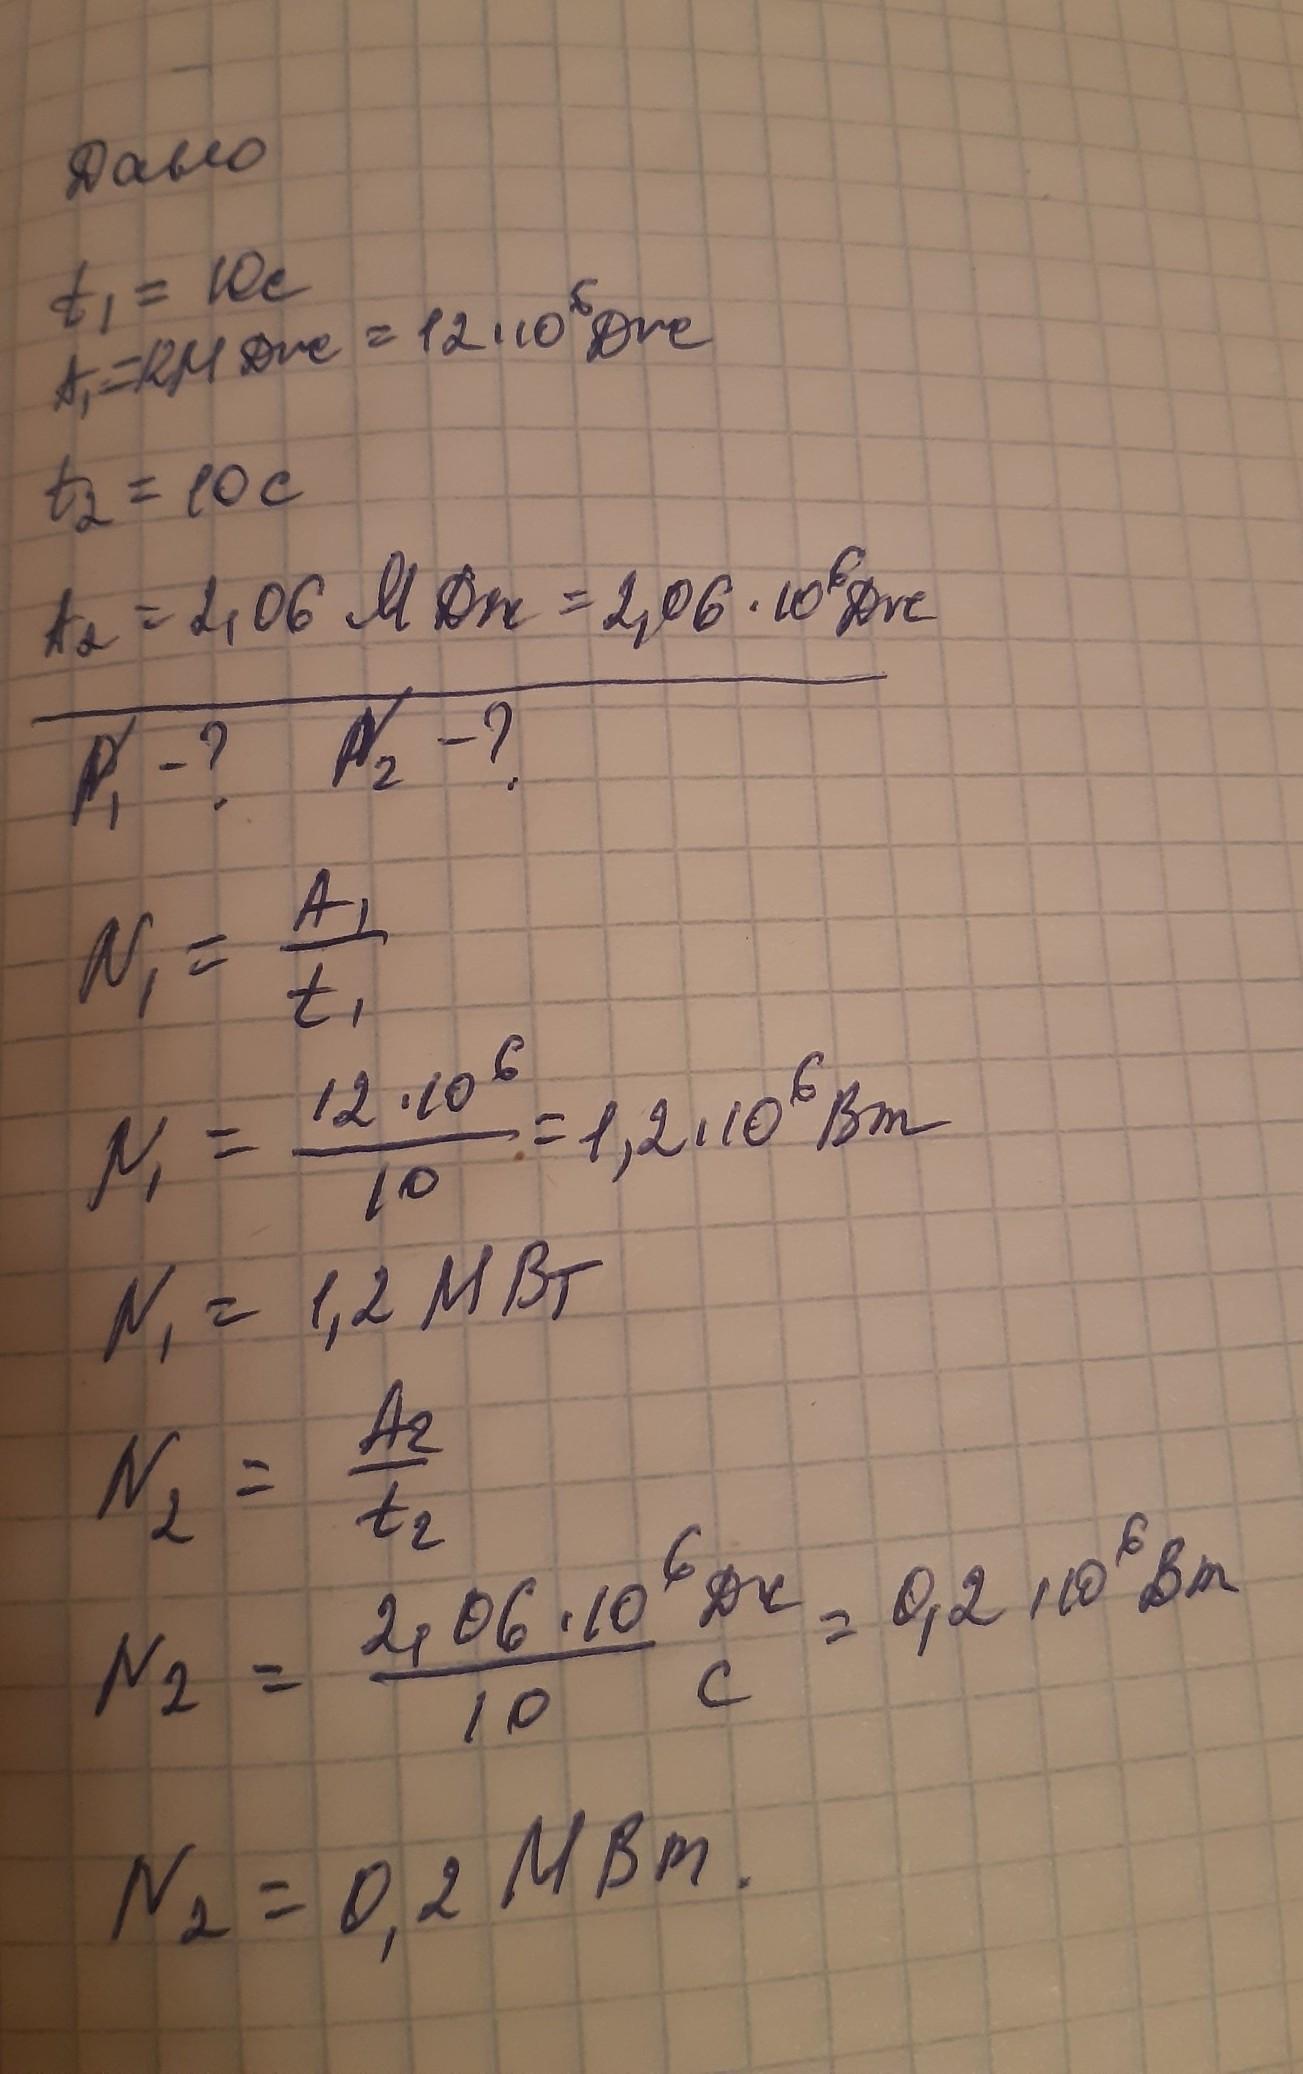 Дано
t₁ = 10c
A₁ = 12МДж = 12·10⁶Дж
t₂ = 10c
A₂ = 2,06 МДж = 2,06·10⁶Дж
N₁ -? N₂ -?
N₁ = A₁/t₁
N₁ = 12·10⁶/10 = 1,2·10⁶Вт
N₁ = 1,2 МВт
N₂ = A₂/t₂
N₂ = 2,06·10⁶/10 Дж/с = 0,2·10⁶Вт
N₂ = 0,2 МВт.